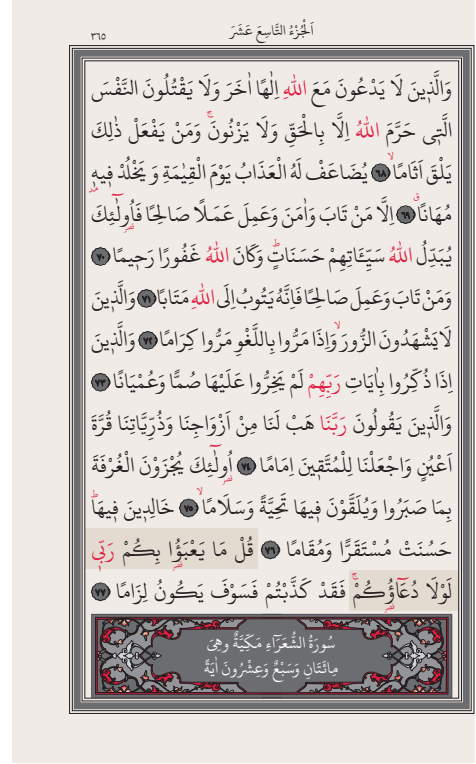 اَلْجُزْءُ التَّاسِعَ عَشَرَ
٣٦٥
وَالَّذ۪ينَ لَا يَدْعُونَ مَعَ اللّٰهِ اِلٰهًا اٰخَرَ وَلَا يَقْتُلُونَ النَّفْسَ
الَّت۪ي حَرَّمَ اللّٰهُ اِلَّا بِالْحَقِّ وَلَا يَزْنُونَۚ وَمَنْ يَفْعَلْ ذٰلِكَ
يَلْقَ اَثَامًاۙ ﴿٦٨﴾ يُضَاعَفْ لَهُ الْعَذَابُ يَوْمَ الْقِيٰمَةِ وَيَخْلُدْ ف۪يه۪
مُهَانًاۗ ﴿٦٩﴾ اِلَّا مَنْ تَابَ وَاٰمَنَ وَعَمِلَ عَمَلًا صَالِحًا فَاُو۬لٰٓئِكَ
يُبَدِّلُ اللّٰهُ سَيِّـَٔاتِهِمْ حَسَنَاتٍۜ وَكَانَ اللّٰهُ غَفُورًا رَح۪يمًا ﴿٧٠﴾
وَمَنْ تَابَ وَعَمِلَ صَالِحًا فَاِنَّهُ يَتُوبُ اِلَى اللّٰهِ مَتَابًا ﴿٧١﴾ وَالَّذ۪ينَ
لَا يَشْهَدُونَ الزُّورَۙ وَاِذَا مَرُّوا بِاللَّغْوِ مَرُّوا كِرَامًا ﴿٧٢﴾ وَالَّذ۪ينَ
اِذَا ذُكِّرُوا بِاٰيَاتِ رَبِّهِمْ لَمْ يَخِرُّوا عَلَيْهَا صُمًّا وَعُمْيَانًا ﴿٧٣﴾
وَالَّذ۪ينَ يَقُولُونَ رَبَّنَا هَبْ لَنَا مِنْ اَزْوَاجِنَا وَذُرِّيَّاتِنَا قُرَّةَ
اَعْيُنٍ وَاجْعَلْنَا لِلْمُتَّق۪ينَ اِمَامًا ﴿٧٤﴾ اُو۬لٰٓئِكَ يُجْزَوْنَ الْغُرْفَةَ
بِمَا صَبَرُوا وَيُلَقَّوْنَ ف۪يهَا تَحِيَّةً وَسَلَامًاۙ ﴿٧٥﴾ خَالِد۪ينَ ف۪يهَاۜ
حَسُنَتْ مُسْتَقَرًّا وَمُقَامًا ﴿٧٦﴾ قُلْ مَا يَعْبَؤُ۬ا بِكُمْ رَبّ۪ي
لَوْلَا دُعَٓاؤُ۬كُمْۚ فَقَدْ كَذَّبْتُمْ فَسَوْفَ يَكُونُ لِزَامًا ﴿٧٧﴾
سُورَةُ الشُّعَرَٓاءِ مَكِّيَّةٌ وَهِيَ
مِائَتَانِ وَسَبْعٌ وَعِشْرُونَ اٰيَةً